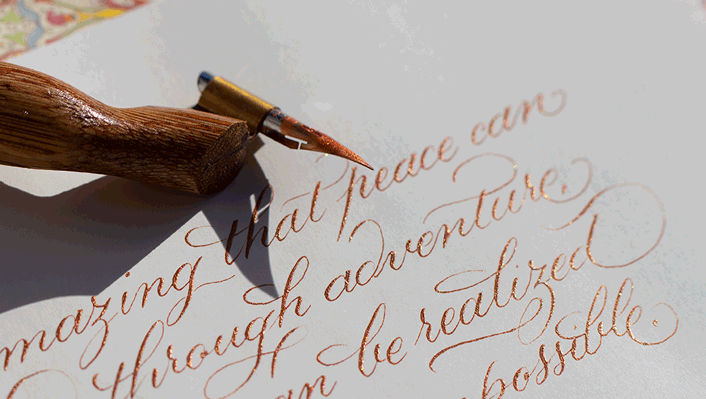 mazing that peace can
through adventure.
an be realized
possible.